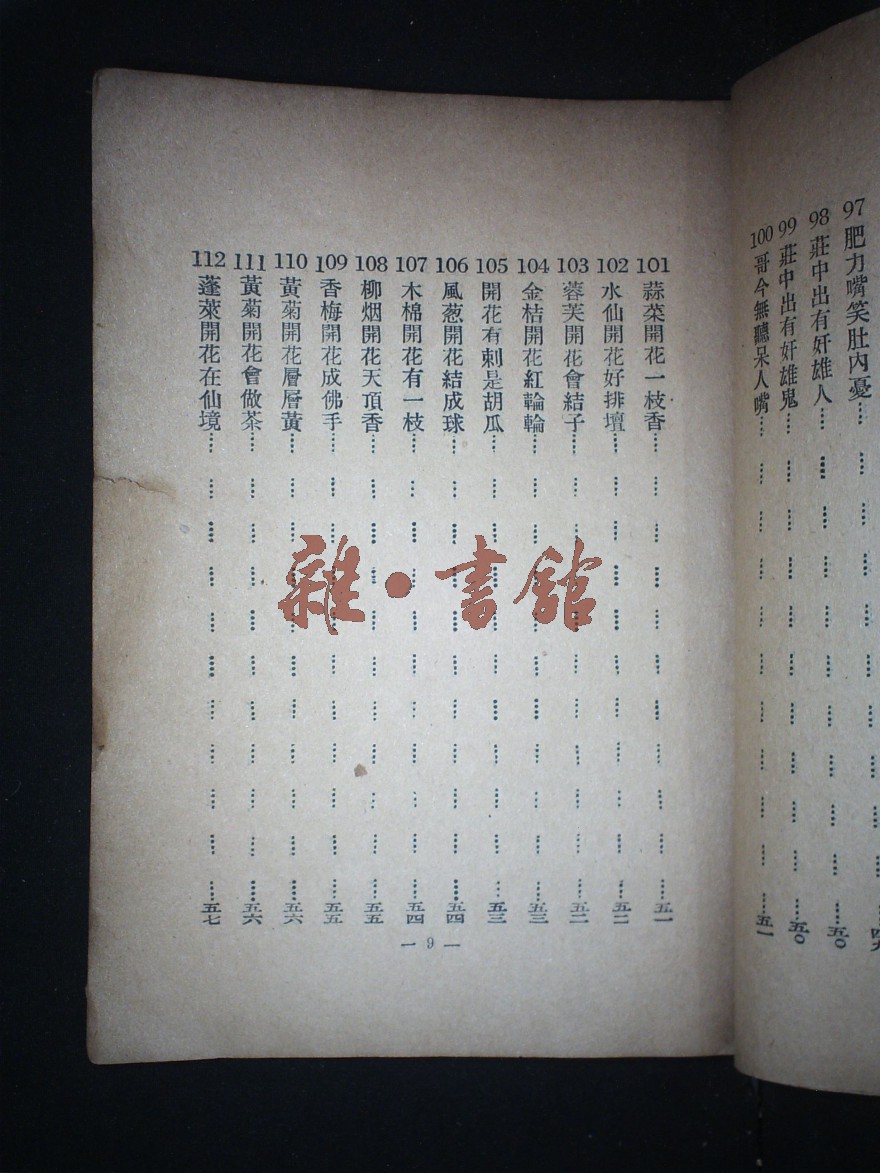 97 肥力嘴笑肚內憂 四九
98 莊中出有奸雄人 五〇
99 莊中出有奸雄鬼 五〇
100 哥今無聽呆人嘴 五一
101 蒜菜開花一枝香 五一
102 水仙開花好排壇 五二
103 蓉芙開花會結子 五二
104 金桔開花紅輪輪 五三
105 開花有刺是胡瓜 五三
106 風葱開花結成球 五四
107 木棉開花有一枝 五四
108 柳烟開花天頂香 五五
109 香梅開花成佛手 五五
110 黃菊開花層層黃 五六
111 黃菊開花會做茶 五六
112 蓬萊開花在仙境 五七
— 9 —
雜·書館